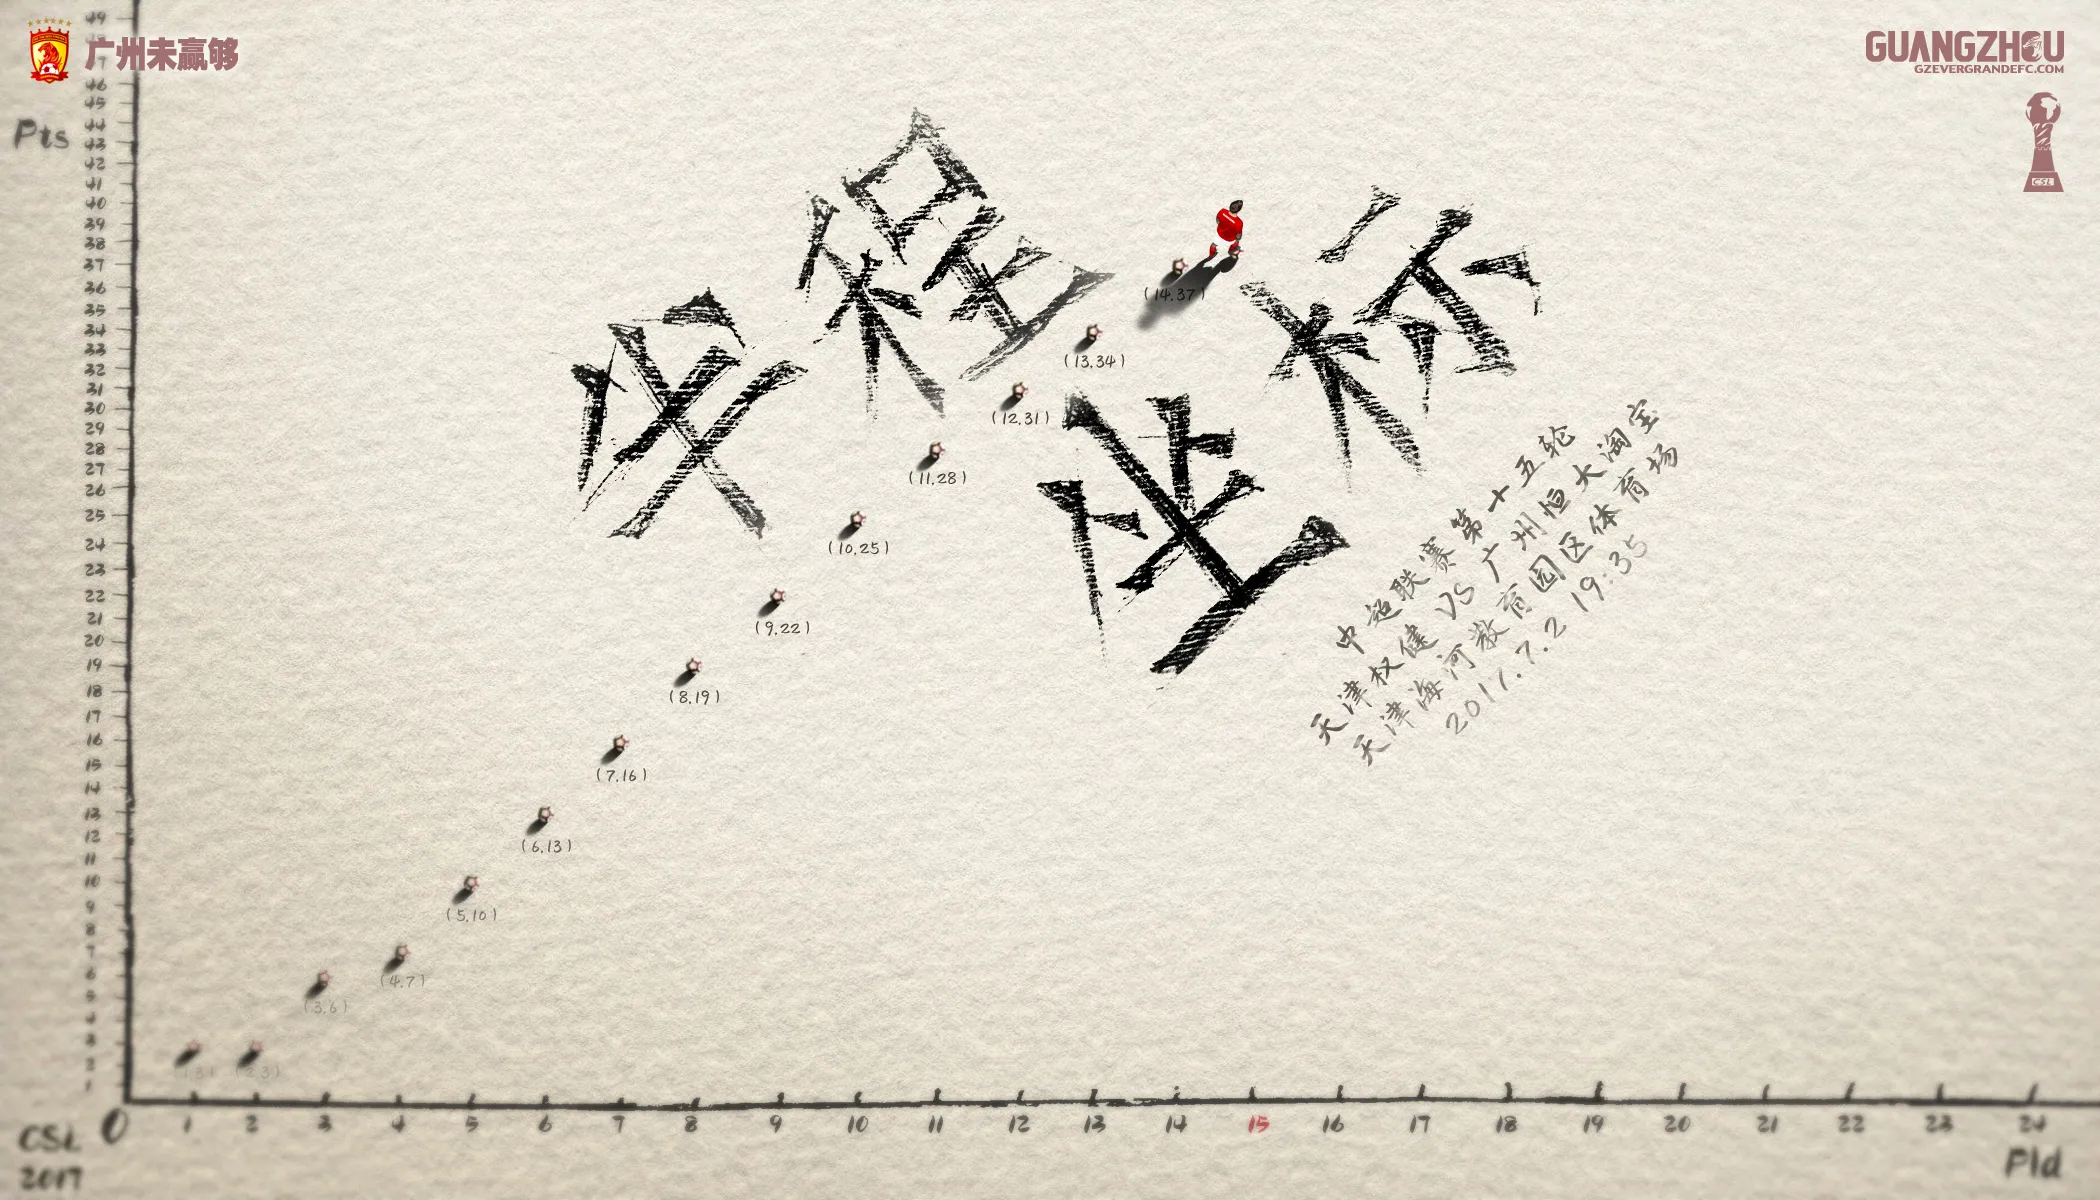 广州未赢够
GUANGZHOU
GZEVERGRANDEFC.COM
CSL
Pts
49
46
45
44
43
42
41
40
39
38
37
36
35
34
33
32
31
30
29
28
27
26
25
24
23
22
21
20
19
18
17
16
15
14
13
12
11
10
9
8
7
6
5
4
3
2
1
程
中超联赛第十五轮
天津权健 VS 广州恒大淘宝
天津海河教育园区体育场
2017.7.2 19:35
(14.37)
(13.34)
(12.31)
(11.28)
(10.25)
(9.22)
(8.19)
(7.16)
(6.13)
(5.10)
(4.7)
(3.6)
(1.3) (2.3)
0 1 2 3 4 5 6 7 8 9 10 11 12 13 14 15 16 17 18 19 20 21 22 23 24
CSL
2017
Pld